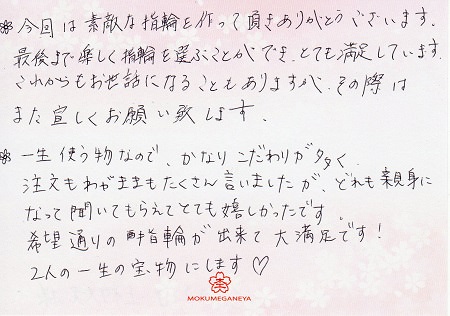 今回は素敵な指輪を作って頂きありがとうございます。
最後まで楽しく指輪を選ぶことができ、とても満足しています。
これからもお世話になることもありますが、その際は
また宜しくお願い致します。
一生使う物なので、かなりこだわりが多く、
注文もわがままもたくさん言いましたが、どれも親身に
なって聞いてもらえてとても嬉しかったです。
希望通りの指輪が出来て大満足です!
2人の一生の宝物にします♡
MOKUMEGANEYA